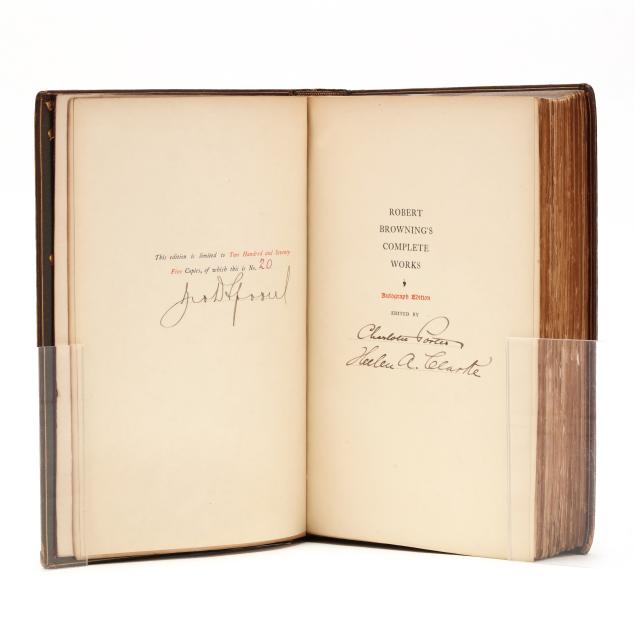 This edition is limited to Two Hundred and Seventy
Five Copies, of which this is No. 20
ROBERT
BROWNING'S
COMPLETE
WORKS
Autograph Edition
EDITED BY
Charlotte Porter
Helen A. Clarke